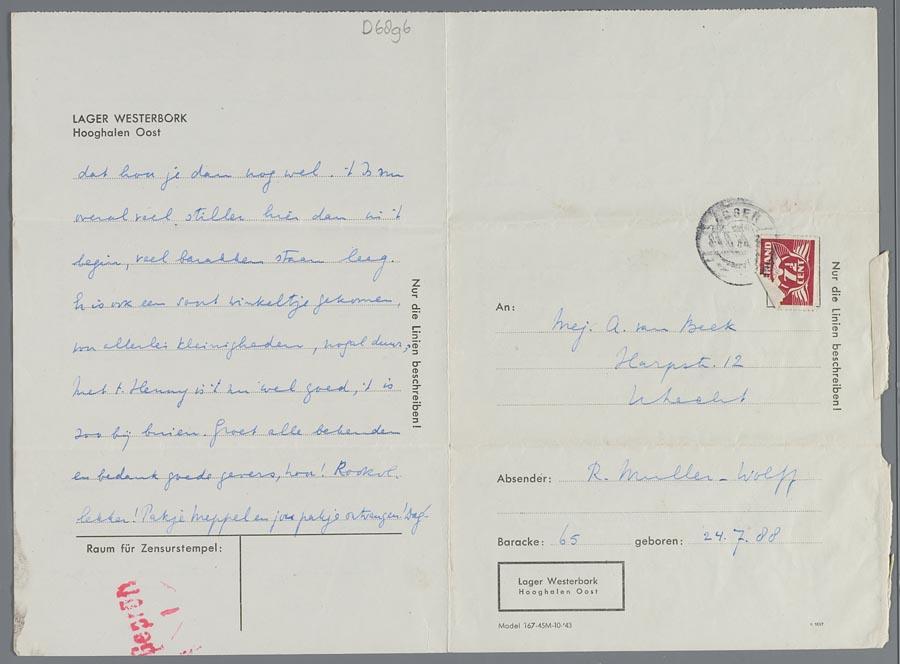 D6896
LAGER WESTERBORK
Hooghalen Oost
dat hou je dan nog wel. 't Is nu
overal veel stiller hier dan in 't
begin, veel barakken staan leeg.
Er is ook een soort winkeltje gekomen,
van allerlei kleinigheden, nogal duur,
Met t. Henny is 't nu wel goed, 't is
zoo bij buien. Groet alle bekenden
en bedank goede gevers, hoor! Rookvl.
lekker! Pakje Meppel en jou pakje ontvangen! Dag
Nur die Linien beschreiben!
Raum für Zensurstempel:
Geprüft
7½ CENT
Nur die Linien beschreiben!
An:
Mej. A. van Beek
Harpstr. 12
Utrecht
Absender: R. Muller-Wolff
Baracke: 65 geboren: 24.7.88
Lager Westerbork
Hooghalen Oost
Model 167-45M-10-'43